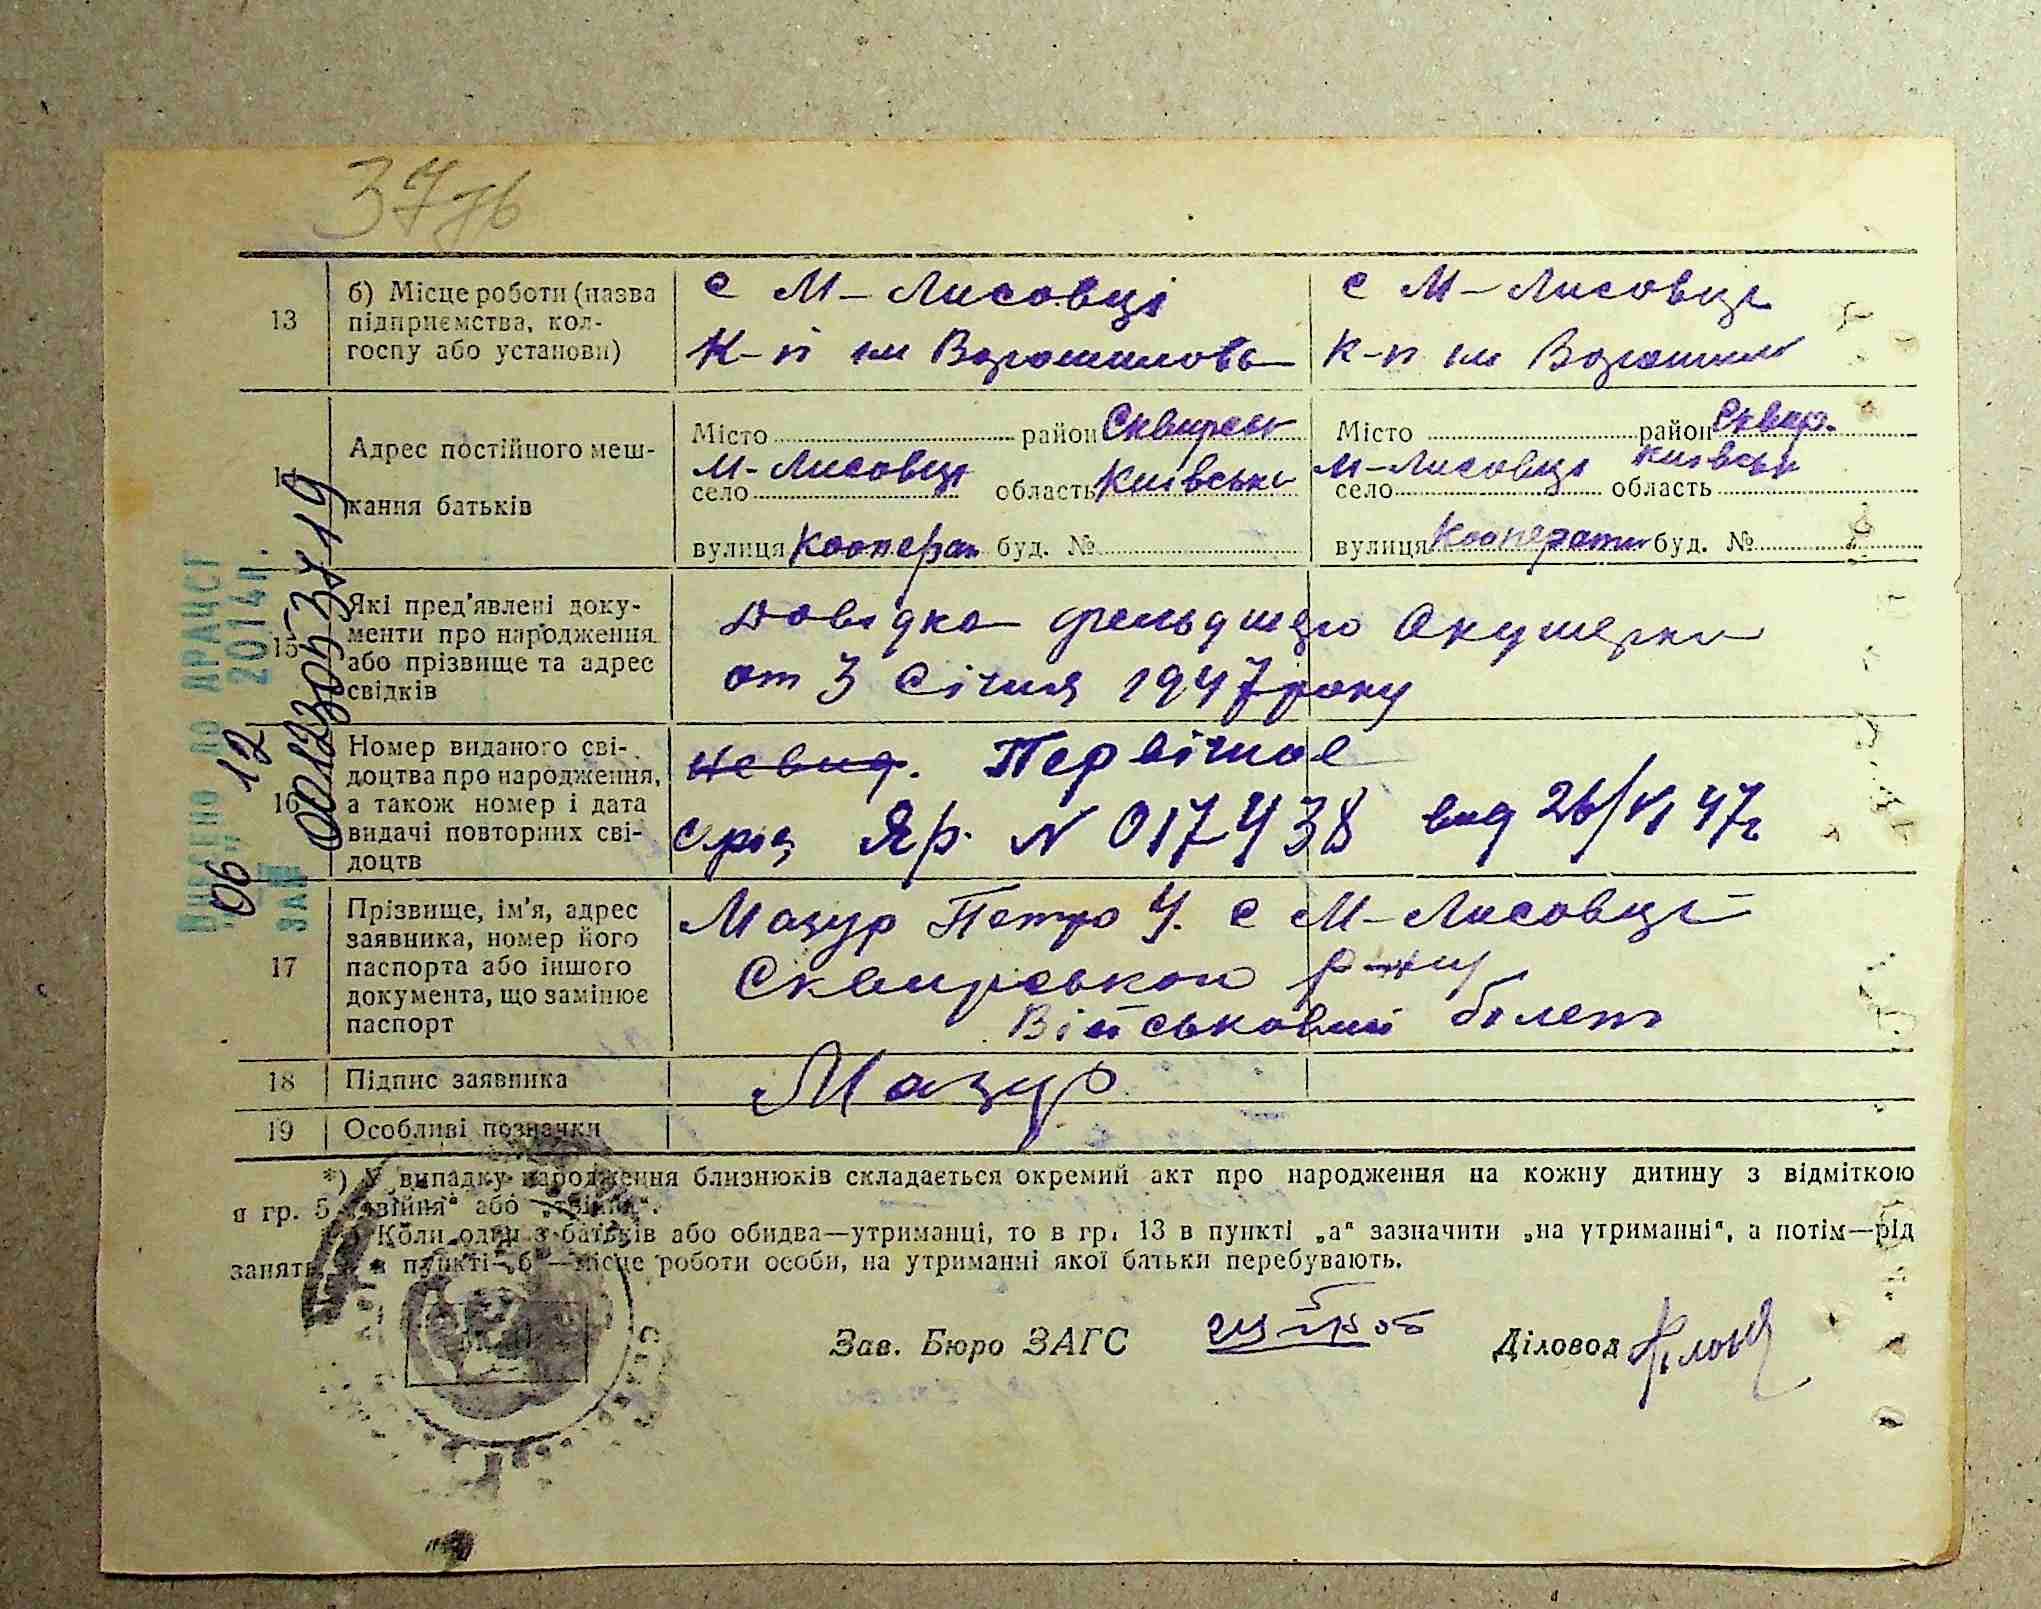 37
13
б) Місце роботи (назва
підприємства, кол-
госпу або установи)
с М-Лисовці
К-п ім Ворошилова
с М-Лисовці
К-п ім Ворошил
14
Адрес постійного меш-
кання батьків
Місто район Сквирськ
М-Лисовці
село область Київськ
вулиця Коопера буд. №
Місто район Сквир.
М-Лисовці Київськ
село область
вулиця Кооперати буд. №
15
Які пред'явлені доку-
менти про народження
або прізвище та адрес
свідків
Довідка Акушерки
от 3 Січня 1947 року
16
Номер виданого сві-
доцтва про народження,
а також номер і дата
видачі повторних сві-
доцтв
невид. Первічное
Яр. N 017438 вид 26/VI 47г
17
Прізвище, ім'я, адрес
заявника, номер його
паспорта або іншого
документа, що замінює
паспорт
Мазур Петро У. с М-Лисовці
Сквирського р-ну
Військовий білет
18
Підпис заявника
Мазур
19
Особливі позначки
*) У випадку народження близнюків складається окремий акт про народження на кожну дитину з відміткою
в гр. 5 „двійня“ або „трійня“.
Коли один з батьків або обидва—утриманці, то в гр. 13 в пункті „а“ зазначити „на утриманні“, а потім—рід
занять, в пункті „б“—місце роботи особи, на утриманні якої батьки перебувають.
Зав. Бюро ЗАГС
Діловод
Внесено до ДРАЦСГ
06 12 2014 р.
ЗА №
00123053719